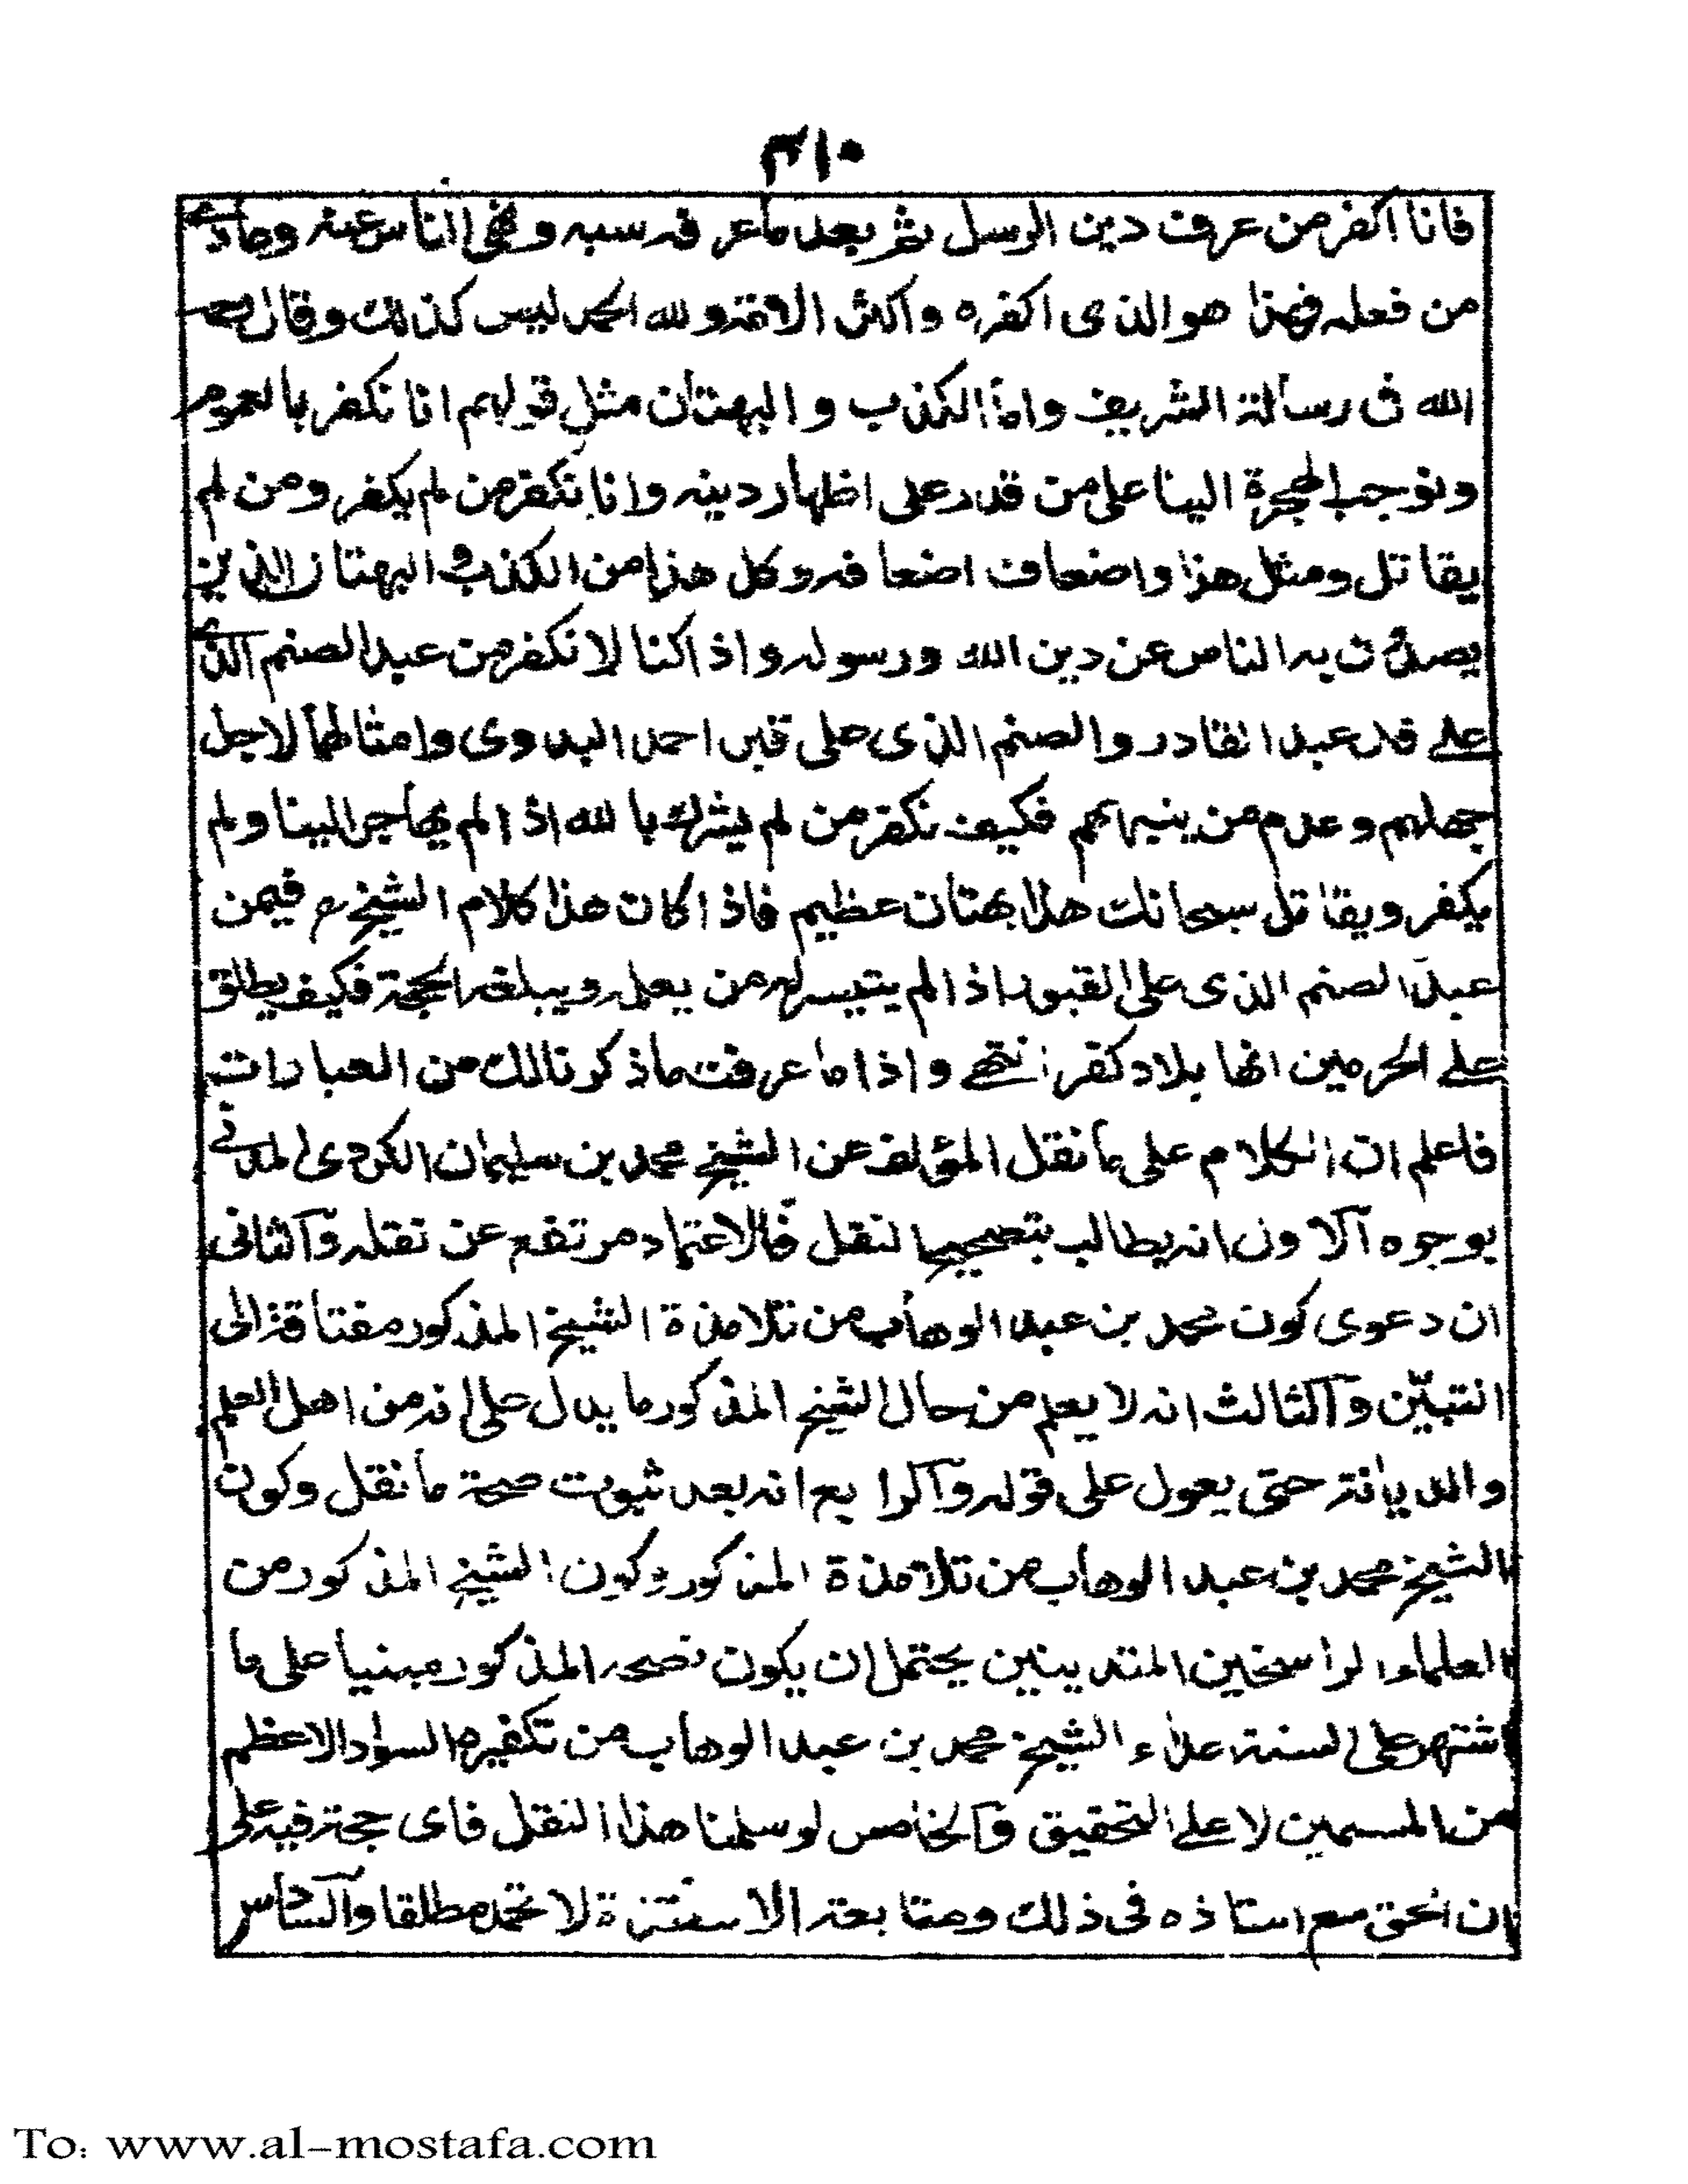 ٤١٠
فانا اكفر من عرف دين الرسل ثم بعد ما عرفه سبه ونهى الناس عنه وعادى
من فعله فهذا هو الذى اكفره واكثر الامة ولله الحمد ليس كذلك وقال رحمه
الله فى رسالة الشريف واما الكذب والبهتان مثل قولهم انا نكفر بالعموم
ونوجب الهجرة الينا على من قدر على اظهار دينه وانا نكفر من لم يكفر ومن لم
يقاتل ومثل هذا واضعاف اضعافه وكل هذا من الكذب والبهتان الذين
يصدون به الناس عن دين الله ورسوله واذا كنا لا نكفر من عبد الصنم الذى
على قبر عبد القادر والصنم الذى على قبر احمد البدوى وامثالهما لاجل
جهلهم وعدم من ينبههم فكيف نكفر من لم يشرك بالله اذا لم يهاجر الينا ولم
يكفر ويقاتل سبحانك هذا بهتان عظيم فاذا كان هذا كلام الشيخ رح فيمن
عبد الصنم الذى على القبور اذا لم يتيسر له من يعلمه ويبلغه الحجة فكيف يطلق
على الحرمين انها بلاد كفر انتهى واذا ما عرفت ماذكرنا لك من العبارات
فاعلم ان الكلام على ما نقل المؤلف عن الشيخ محمد بن سليمان الكردى المدنى
بوجوه آلاول انه يطالب بتصحيح النقل فالاعتماد مرتفع عن نقله وآلثانى
ان دعوى كون محمد بن عبد الوهاب من تلامذة الشيخ المذكور مفتاقة الى
التبيّن وآلثالث انه لا يعلم من حال الشيخ المذكور ما يدل على انه من اهل العلم
والديانة حتى يعول على قوله وآلرابع انه بعد ثبوت صحة ما نقل وكون
الشيخ محمد بن عبد الوهاب من تلامذة المذكور وكون الشيخ المذكور من
العلماء الراسخين المتدينين يحتمل ان يكون نصحه المذكور مبنيا على ما
اشتهر على السنة اعداء الشيخ محمد بن عبد الوهاب من تكفيره السواد الاعظم
من المسلمين لا على التحقيق وآلخامس لو سلمنا هذا النقل فاى حجة فيه على
ان الحق مع استاذه فى ذلك ومتابعة الاساتذة لا تحمد مطلقا وآلسادس
To: www.al-mostafa.com